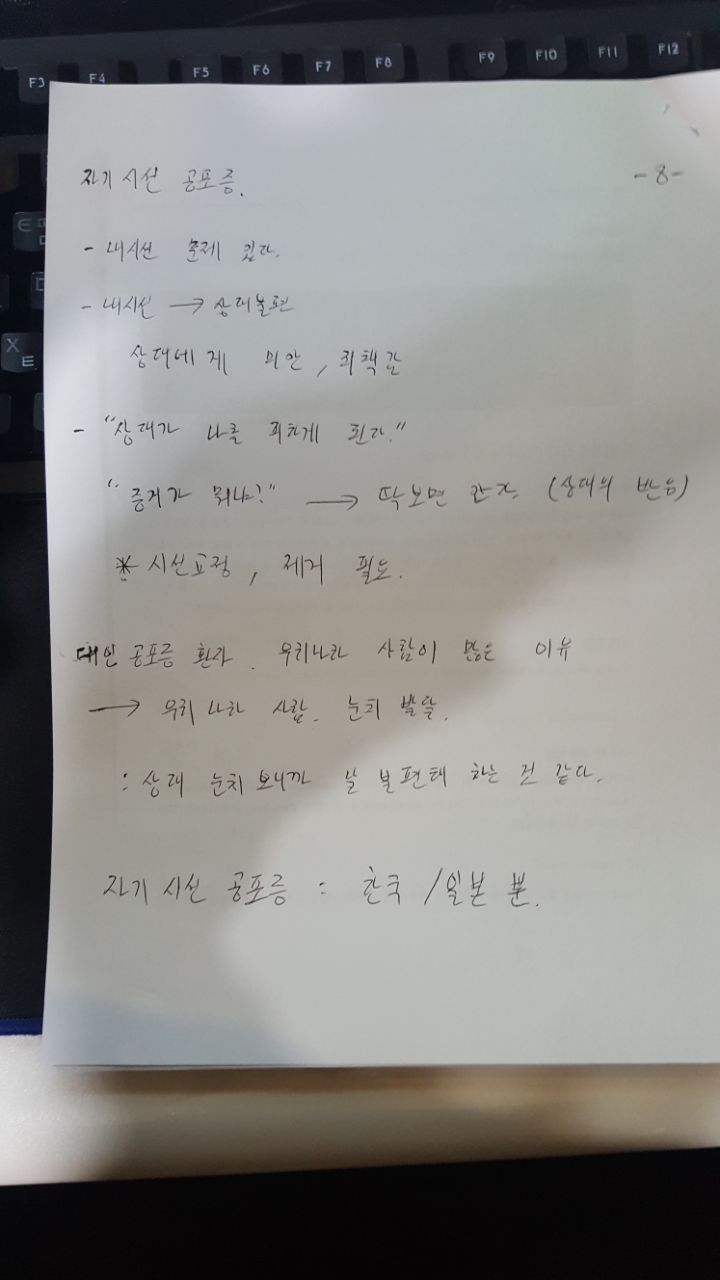 F3 F4 F5 F6 F7 F8 F9 F10 F11 F12
자기 시선 공포증.
-8-
- 내시선 문제 있다.
- 내시선 → 상대불편
상대에게 미안, 죄책감
- "상대가 나를 피하게 된다."
"증거가 뭐냐?" → 딱보면 안다. (상대의 반응)
* 시선교정, 제거 필요.
대인 공포증 환자. 우리나라 사람이 많은 이유
→ 우리나라 사람. 눈치 발달.
: 상대 눈치 보니까 날 불편해 하는 것 같다.
자기 시선 공포증 : 한국/일본 뿐.
X
ㅌ